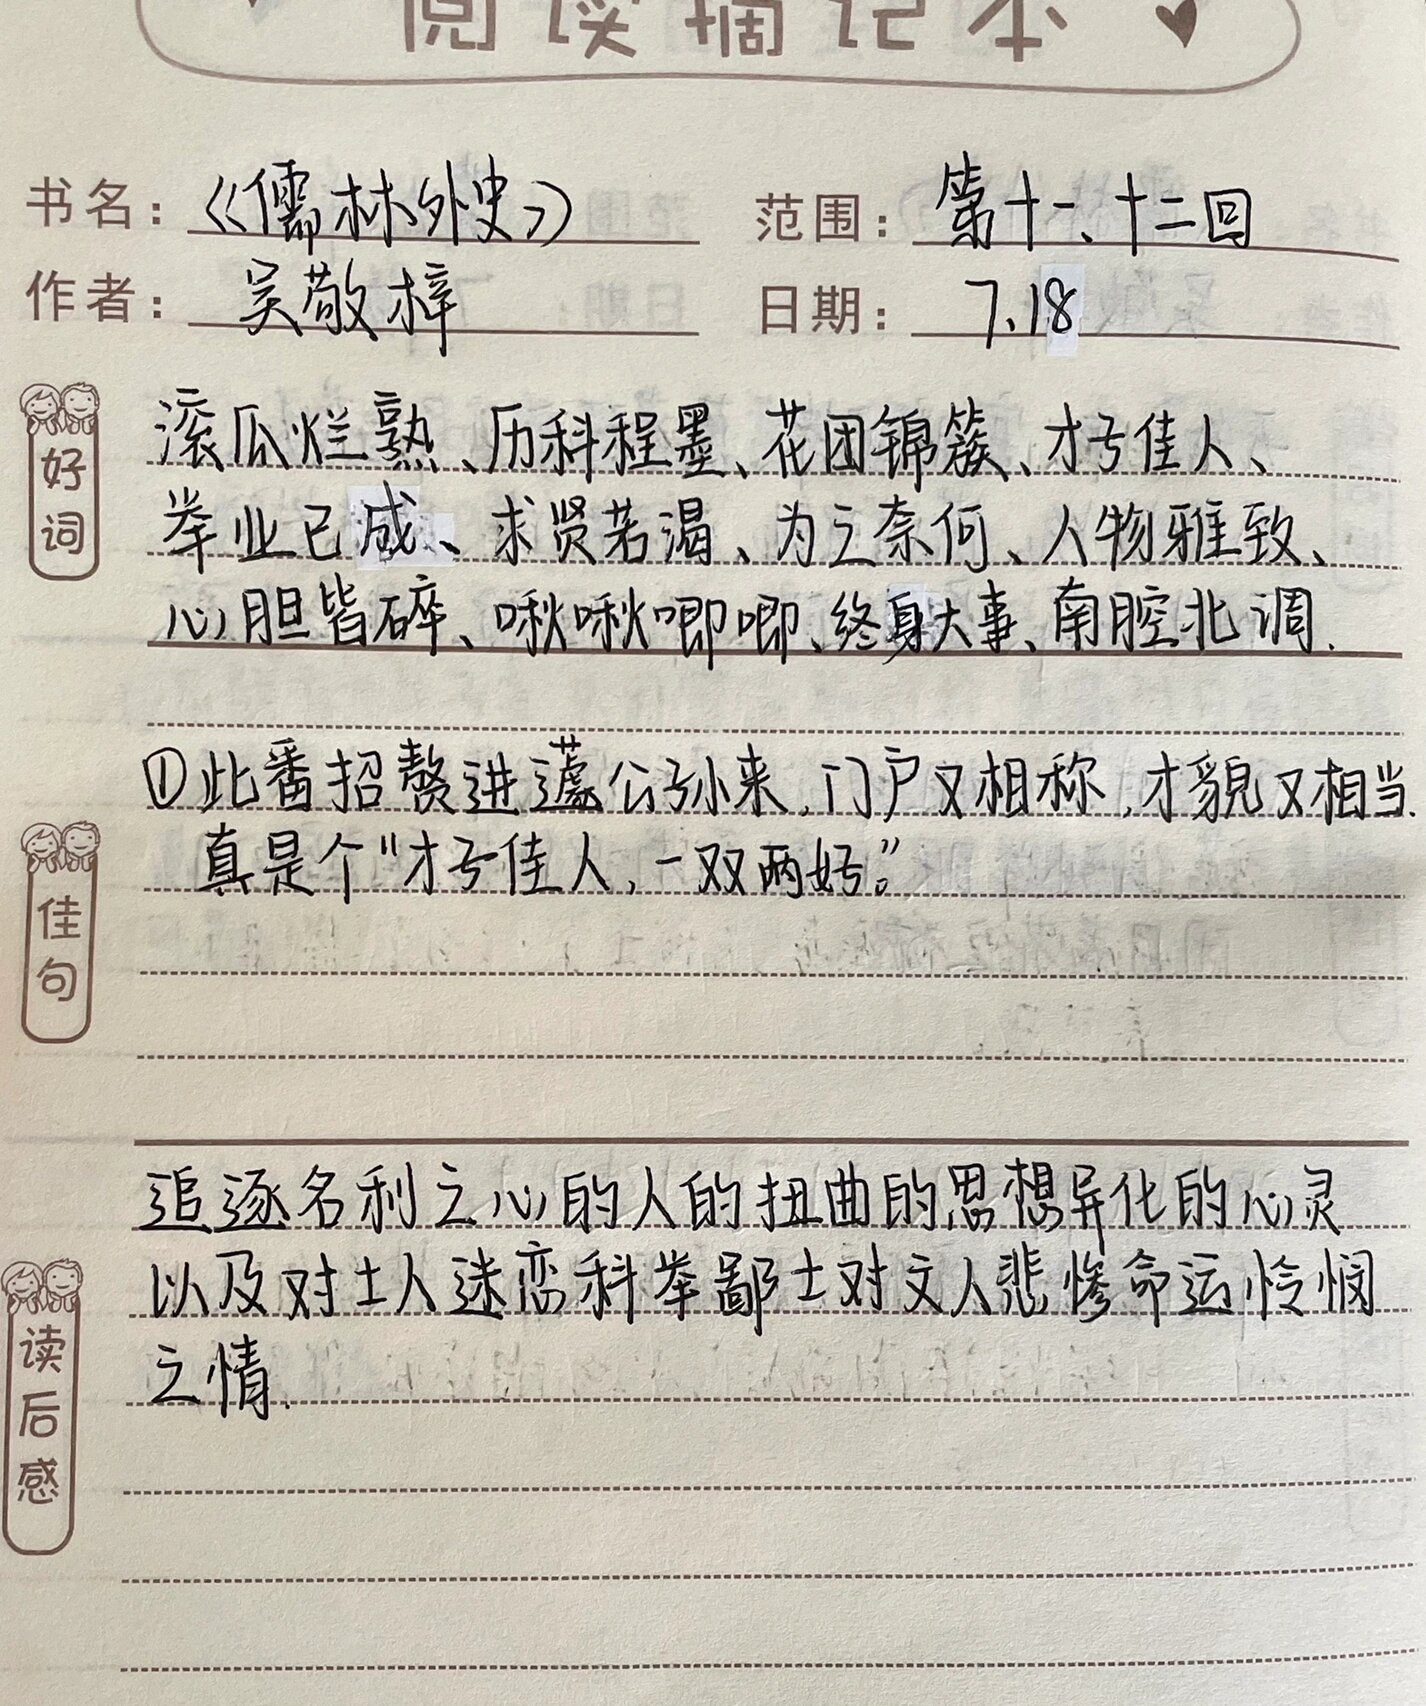 阅读摘记本
书名：《儒林外史》 范围：第十一、十二回
作者：吴敬梓 日期：7.18
好词
滚瓜烂熟、历科程墨、花团锦簇、才子佳人、
举业已成、求贤若渴、为之奈何、人物雅致、
心胆皆碎、啾啾唧唧、终身大事、南腔北调.
佳句
①此番招赘进蘧公孙来,门户又相称,才貌又相当.
真是个“才子佳人,一双两好。”
读后感
追逐名利之心的人的扭曲的思想异化的心灵
以及对士人迷恋科举鄙士对文人悲惨命运怜悯
之情.